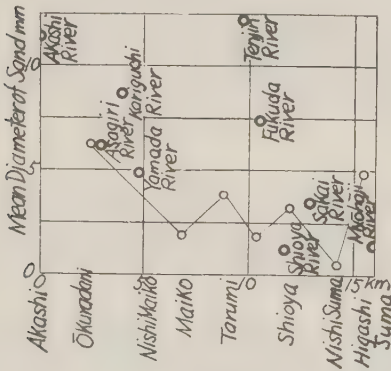 Mean Diameter of Sand mm
10
5
0
Akashi River
Asagiri River
Kariguchi River
Yamada River
Tenjin River
Fukuda River
Shioya River
Sakai River
River
5
10
15 km
Akashi
Ōkuradani
Nishi Maiko
Maiko
Tarumi
Shioya
Nishi Suma
Higashi Suma